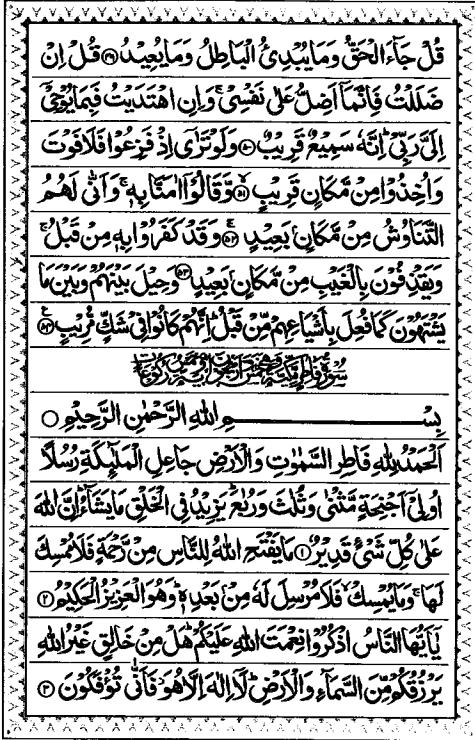 قُلْ جَآءَ الْحَقُّ وَمَا يُبْدِئُ الْبَاطِلُ وَمَا يُعِيْدُ ﴿۴۹﴾ قُلْ اِنْ
ضَلَلْتُ فَاِنَّمَاۤ اَضِلُّ عَلٰى نَفْسِيْ ۚ وَاِنِ اهْتَدَيْتُ فَبِمَا يُوْحِيْۤ
اِلَيَّ رَبِّيْ ؕ اِنَّهٗ سَمِيْعٌ قَرِيْبٌ ﴿۵۰﴾ وَلَوْ تَرٰۤى اِذْ فَزِعُوْا فَلَا فَوْتَ
وَاُخِذُوْا مِنْ مَّكَانٍ قَرِيْبٍ ﴿۵۱﴾ وَّقَالُوْۤا اٰمَنَّا بِهٖ ۚ وَاَنّٰى لَهُمُ
التَّنَاوُشُ مِنْ مَّكَانٍۭ بَعِيْدٍ ﴿۵۲﴾ وَقَدْ كَفَرُوْا بِهٖ مِنْ قَبْلُ ۚ
وَيَقْذِفُوْنَ بِالْغَيْبِ مِنْ مَّكَانٍۭ بَعِيْدٍ ﴿۵۳﴾ وَحِيْلَ بَيْنَهُمْ وَبَيْنَ مَا
يَشْتَهُوْنَ كَمَا فُعِلَ بِاَشْيَاعِهِمْ مِّنْ قَبْلُ ؕ اِنَّهُمْ كَانُوْا فِيْ شَكٍّ مُّرِيْبٍ ﴿۵۴﴾
سُوْرَةُ فَاطِرٍ مَكِّيَّةٌ
بِسْمِ اللّٰهِ الرَّحْمٰنِ الرَّحِيْمِ
اَلْحَمْدُ لِلّٰهِ فَاطِرِ السَّمٰوٰتِ وَالْاَرْضِ جَاعِلِ الْمَلٰٓئِكَةِ رُسُلًا
اُولِيْۤ اَجْنِحَةٍ مَّثْنٰى وَثُلٰثَ وَرُبٰعَ ؕ يَزِيْدُ فِي الْخَلْقِ مَا يَشَآءُ ؕ اِنَّ اللّٰهَ
عَلٰى كُلِّ شَيْءٍ قَدِيْرٌ ﴿۱﴾ مَا يَفْتَحِ اللّٰهُ لِلنَّاسِ مِنْ رَّحْمَةٍ فَلَا مُمْسِكَ
لَهَا ۚ وَمَا يُمْسِكْ ۙ فَلَا مُرْسِلَ لَهٗ مِنْۢ بَعْدِهٖ ؕ وَهُوَ الْعَزِيْزُ الْحَكِيْمُ ﴿۲﴾
يٰۤاَيُّهَا النَّاسُ اذْكُرُوْا نِعْمَتَ اللّٰهِ عَلَيْكُمْ ؕ هَلْ مِنْ خَالِقٍ غَيْرُ اللّٰهِ
يَرْزُقُكُمْ مِّنَ السَّمَآءِ وَالْاَرْضِ ؕ لَاۤ اِلٰهَ اِلَّا هُوَ ۖ فَاَنّٰى تُؤْفَكُوْنَ ﴿۳﴾